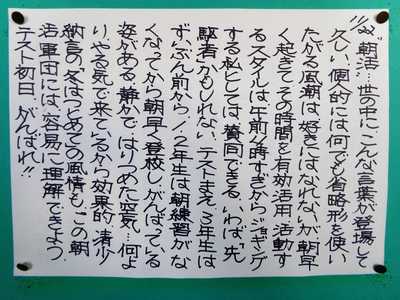 11/22 “朝活”…世の中にこんな言葉が登場して
久しい。個人的には何でも省略形を使い
たがる風潮は好きにはなれないが、朝早
く起きてその時間を有効活用、活動す
るスタイルは、午前1時すぎからジョギング
する私としては、賛同できる。いわば“先
駆者”かもしれない。テストまえ、3年生は
ずいぶん前から、1、2年生は朝練習がな
くなってから朝早く登校し、がんばっている
姿がある。静かではりつめた空気…何よ
り、やる気で来ているから効果的。清少
納言の「冬はつとめて」の風情も、この朝
活軍団には、容易に理解できよう。
テスト初日、がんばれ!!